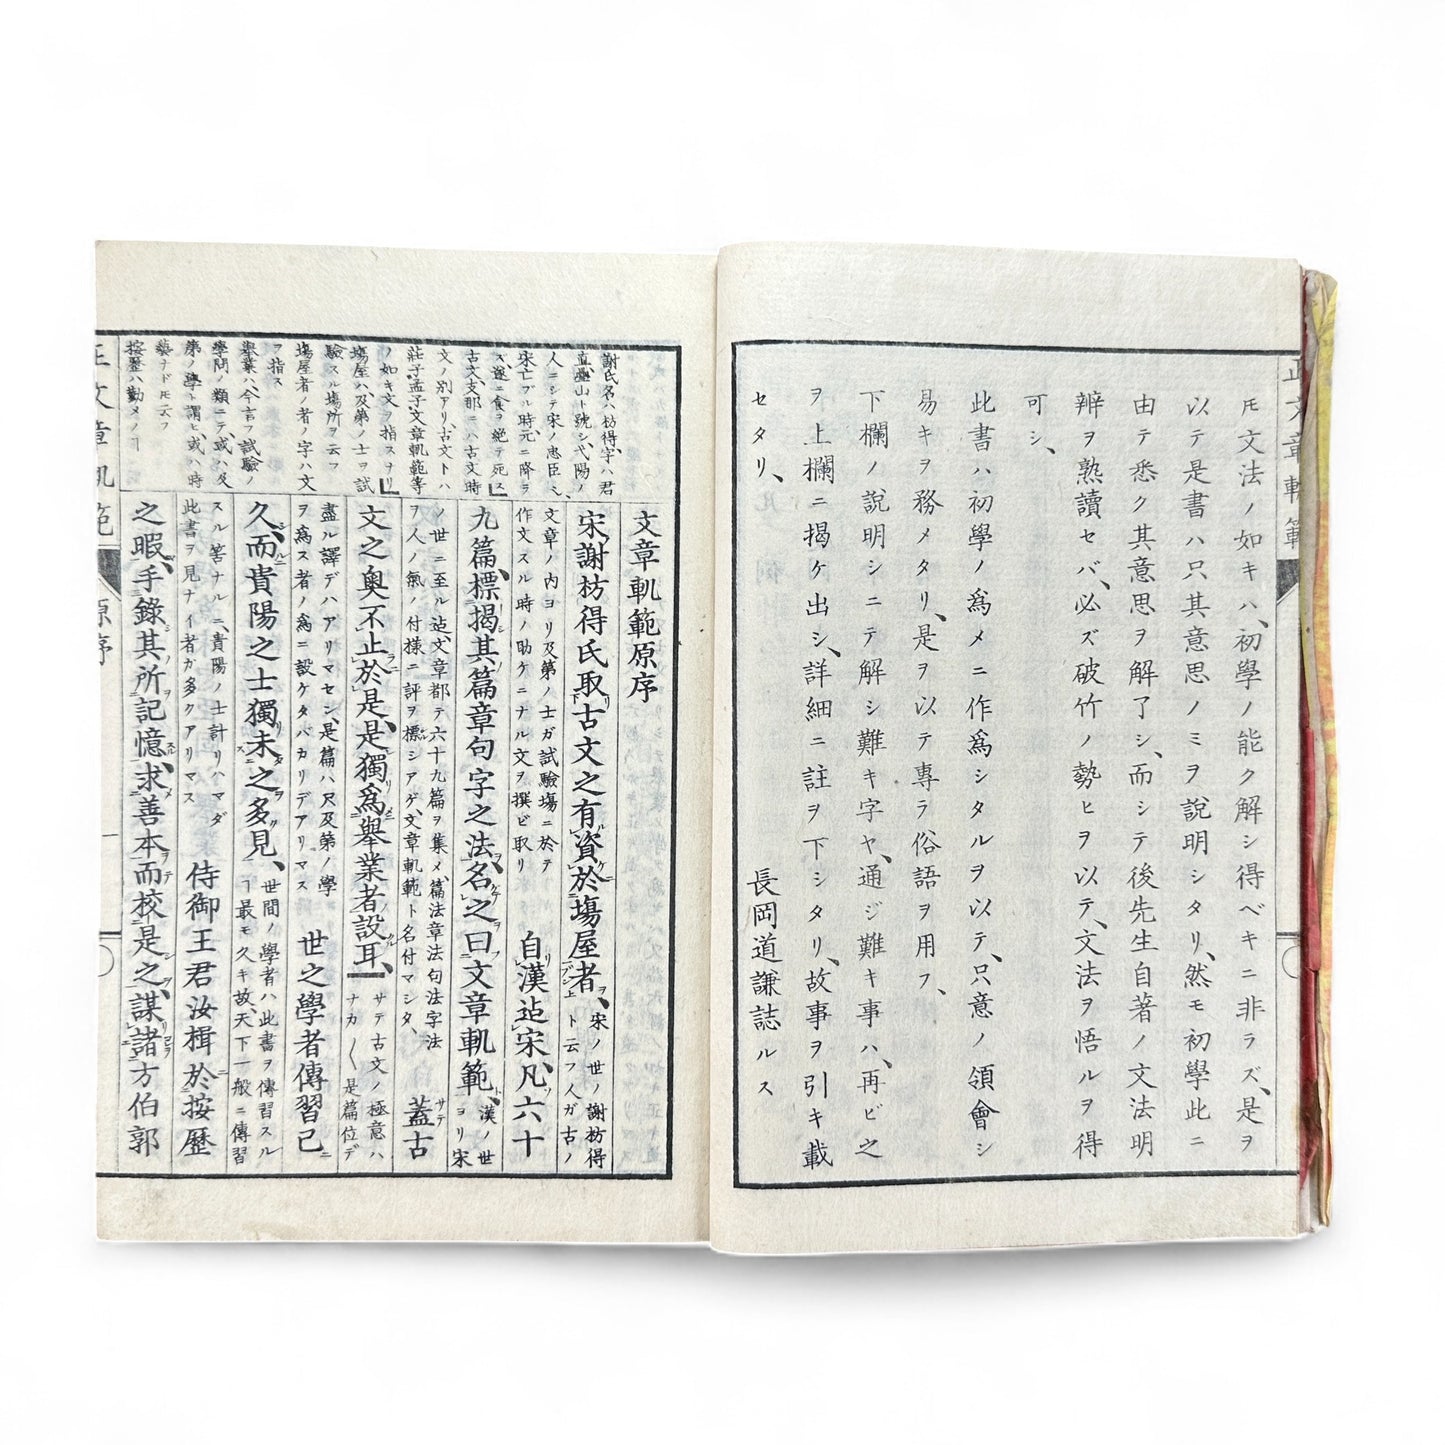 モ文法ノ如キハ、初學ノ能ク解シ得ベキニ非ラズ、是ヲ
以テ是書ハ只其意思ノミヲ説明シタリ、然モ初學此ニ
由テ悉ク其意思ヲ解了シ、而シテ後先生自著ノ文法明
辨ヲ熟讀セバ、必ズ破竹ノ勢ヒヲ以テ、文法ヲ悟ルヲ得
可シ、
此書ハ初學ノ爲メニ作爲シタルヲ以テ、只意ノ領會シ
易キヲ務メタリ、是ヲ以テ專ラ俗語ヲ用フ、
下欄ノ説明シニテ解シ難キ字ヤ、通ジ難キ事ハ、再ビ之
ヲ上欄ニ揭ケ出シ、詳細ニ註ヲ下シタリ、故事ヲ引キ載
セタリ、
長岡道謙誌ルス
謝氏名ハ枋得、字ハ君
直、疊山ト號シ、弋陽ノ
人ニシテ宋ノ忠臣ヘ、
宋亡ブル時元ニ降ラ
ズ、遂ニ食ヲ絶テ死ス
古文、支那ニハ古文時
文ノ別アリ、古文トハ
莊子孟子文章軌範等
ノ如キ文ヲ指スナリ
塲屋ハ及第ノ士ヲ試
驗スル塲所ヲ云フ
塲屋者ノ者ノ字ハ文
ヲ指ス
舉業ハ、今言フ試驗ノ
學問ノ類ニテ、或ハ及
第ノ學ト謂ヒ、或ハ時
藝ナドモ云フ
按歷ハ勤メノヿ
文章軌範原序
宋謝枋得氏取古文之有資於塲屋者、宋ノ世ノ謝枋得
ト云フ人ガ古ノ
文章ノ内ヨリ及第ノ士ガ試驗塲ニ於テ
作文スル時ノ助ケニナル文ヲ撰ビ取リ
自漢迄宋、凡六十
九篇、標揭其篇章句字之法、名之曰文章軌範、漢ノ世
ヨリ宋
ノ世ニ至ル迄、文章都テ六十九篇ヲ集メ、篇法章法句法字法
ヲ人ノ氣ノ付様ニ評ヲ標シアゲ、文章軌範ト名付マシタ、
蓋古
文之奥不止於是、是獨爲舉業者設耳、サテ古文ノ極意ハ
ナカ〱是篇位デ
盡ル譯デハアリマセン、是篇ハ只及第ノ學
ヲ爲ス者ノ爲ニ設ケタバカリデアリマス
世之學者傳習已
久、而貴陽之士獨未之多見、世間ノ學者ハ此書ヲ傳習スル
ヿ最モ久キ故、天下一般ニ傳習
スル筈ナルニ、貴陽ノ士計リハマダ
此書ヲ見ナイ者ガ多クアリマス
侍御王君汝楫於按歷
之暇、手錄其所記憶、求善本而校是之、謀諸方伯郭
正文章軌範
原序